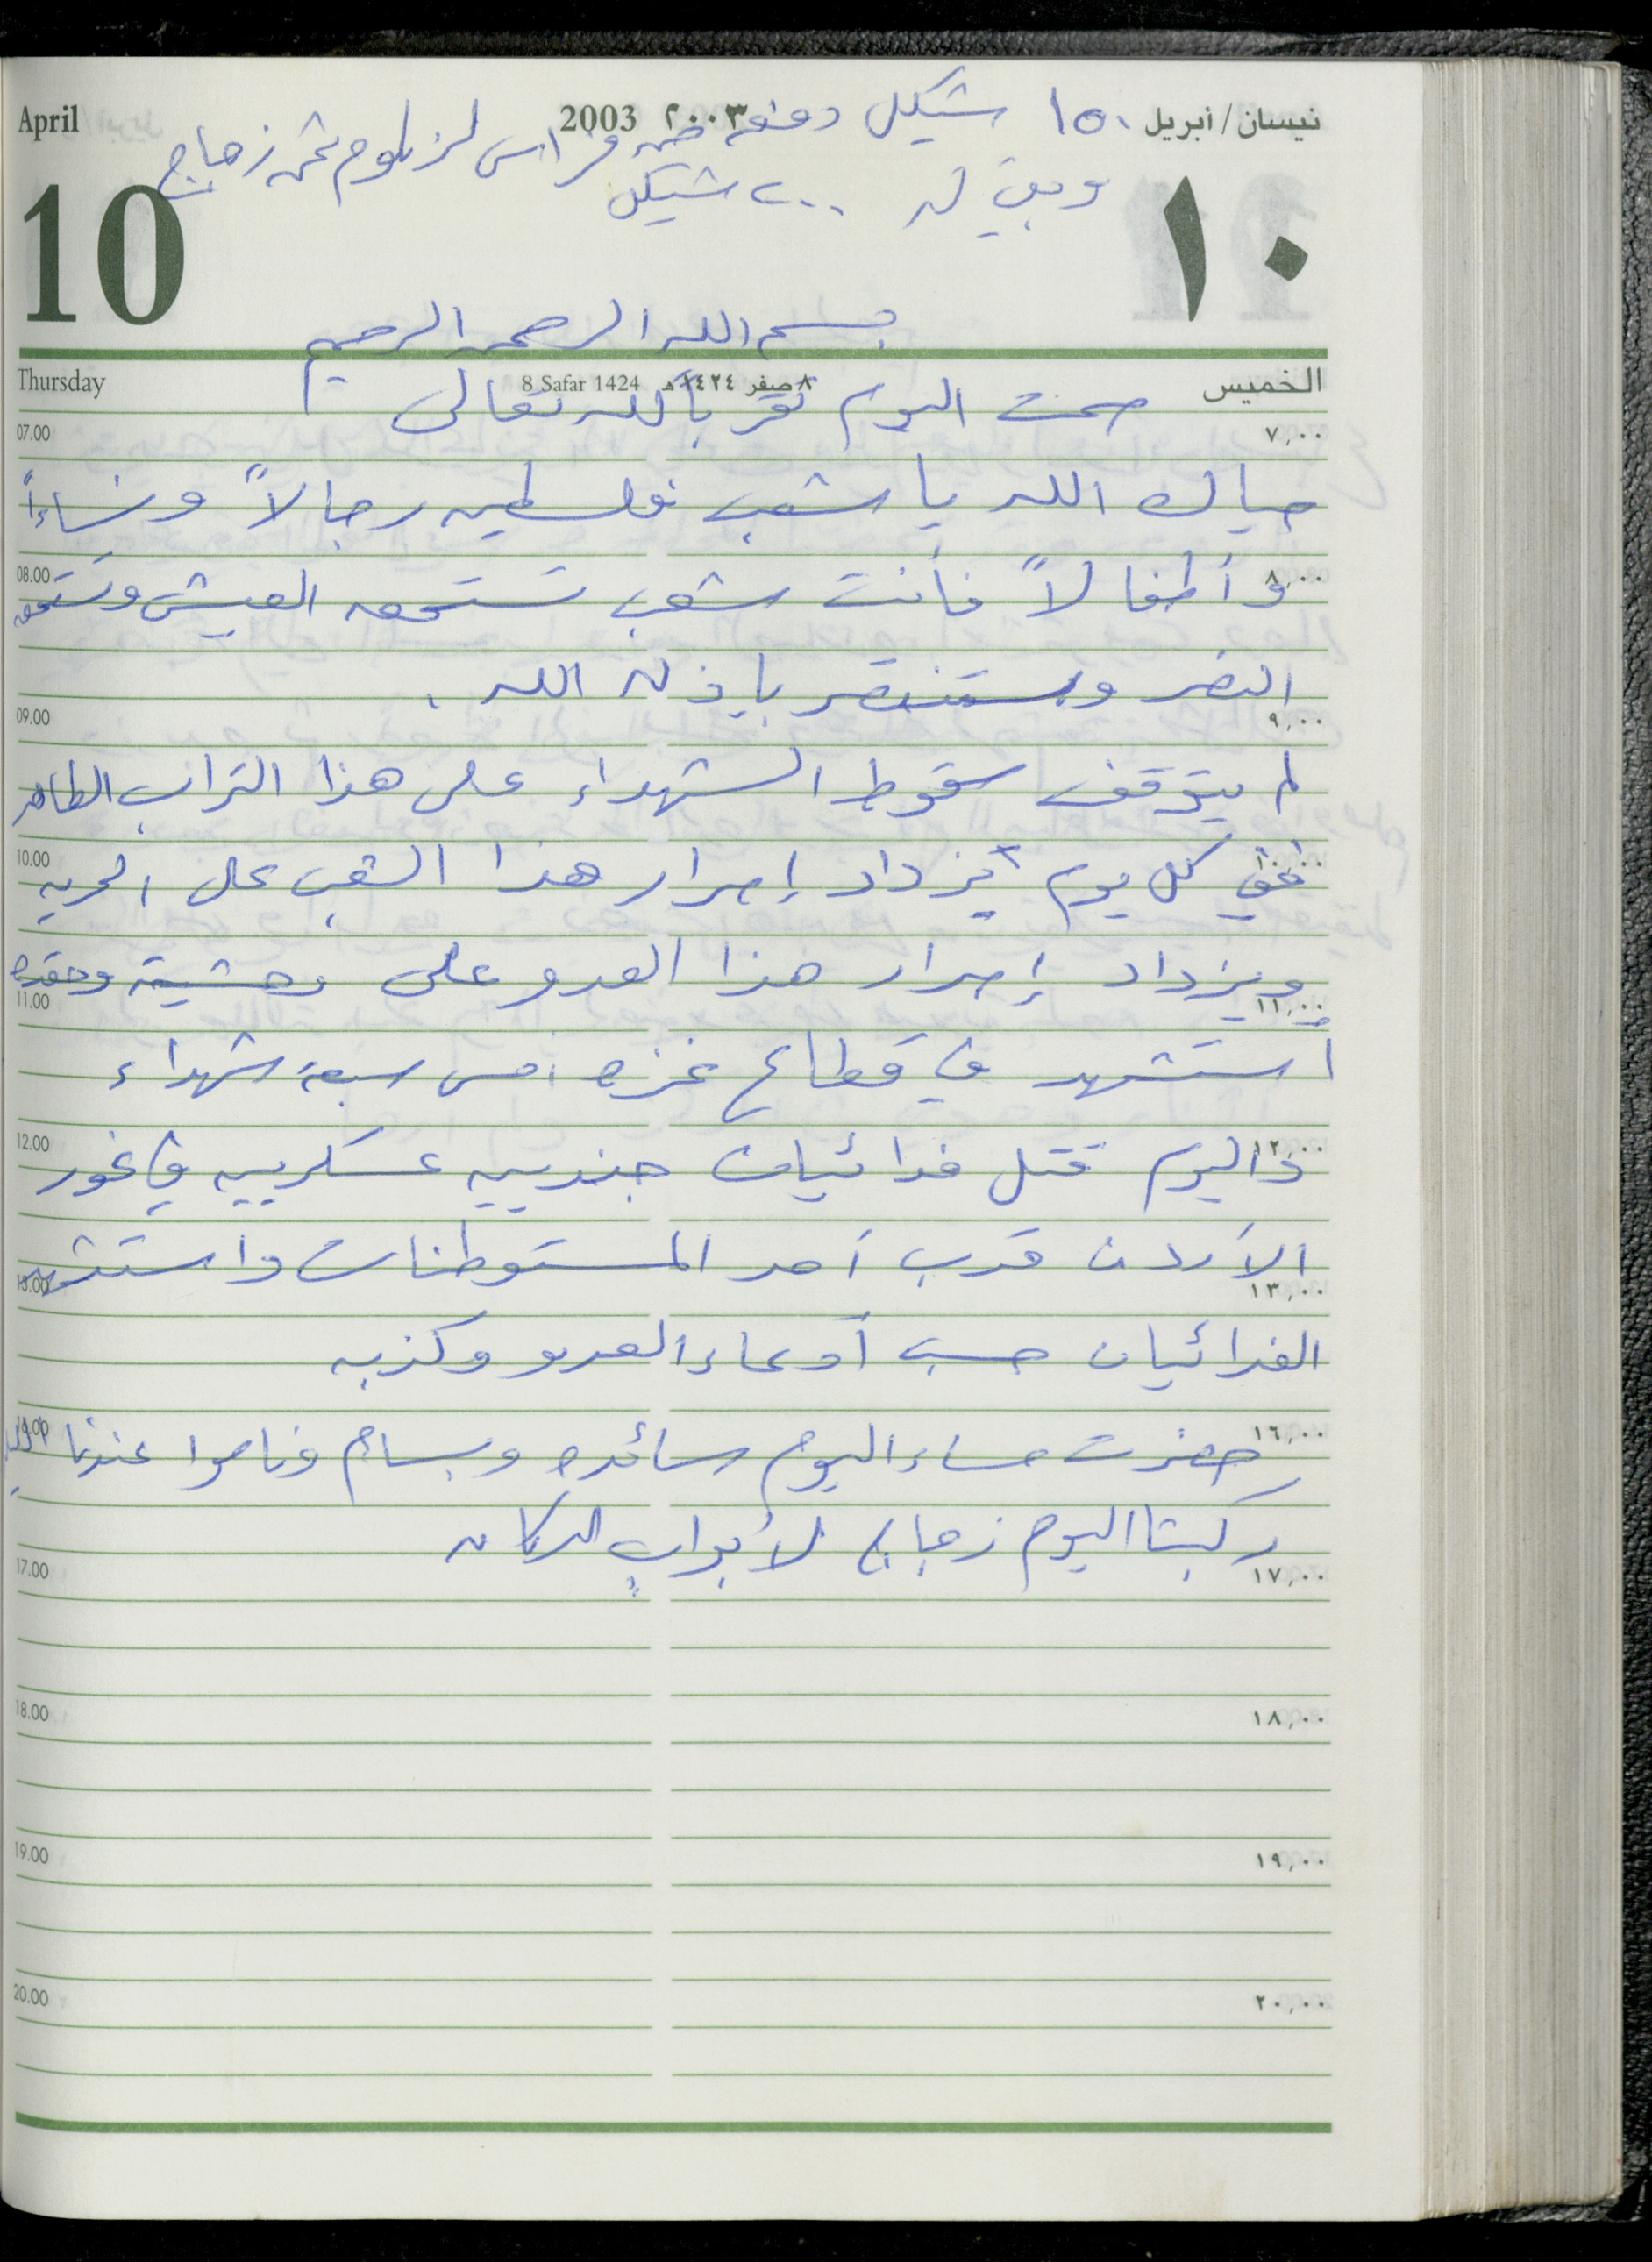 April 2003 ٢٠٠٣ نيسان / أبريل
١٥٠ شيكل دفعة من فراس لزلوم ثمن زجاج
10 ١٠
وبقي له ٢٠٠ شيكل
بسم الله الرحمن الرحيم
Thursday 8 Safar 1424 ٨ صفر ١٤٢٤ هـ الخميس
صمت اليوم تقرباً لله تعالى
07.00 ٧,٠٠
حياك الله يا شعب فلسطين رجالاً ونساءاً
08.00 ٨,٠٠
وأطفالاً فأنت شعب تستحق العيش وتستحق
النصر وستنتصر بإذن الله .
09.00 ٩,٠٠
لم يتوقف سقوط الشهداء على هذا التراب الطاهر
10.00 ١٠,٠٠
ففي كل يوم يزداد إصرار هذا الشعب على الحريه
ويزداد إصرار هذا العدو على وحشيته وحقده
11.00 ١١,٠٠
أستشهد في قطاع غزه امس سبعة شهداء
12.00 ١٢,٠٠
واليوم قتل فدائيان جنديين عسكريين في غور
الأردن قرب أحد المستوطنات واستشهد
13.00 ١٣,٠٠
الفدائيان حسب أدعاء العدو وكذبه
١٦,٠٠
حضرت مساء اليوم سائده وبسام وناموا عندنا
ركبنا اليوم زجاج لأبواب الدكان
17.00 ١٧,٠٠
18.00 ١٨,٠٠
19.00 ١٩,٠٠
20.00 ٢٠,٠٠